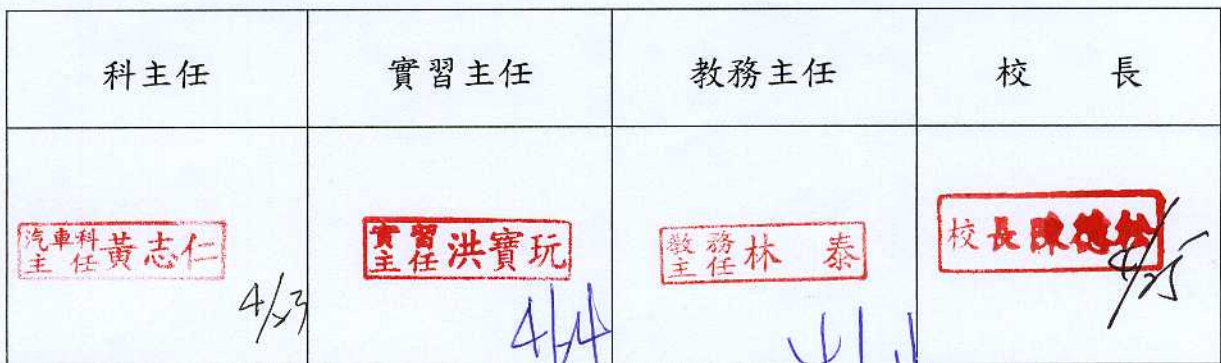 科主任 實習主任 教務主任 校 長
汽車科主任 黃志仁
4/23
實習主任 洪寶玩
教務主任 林 泰
校長陳德松
4/25